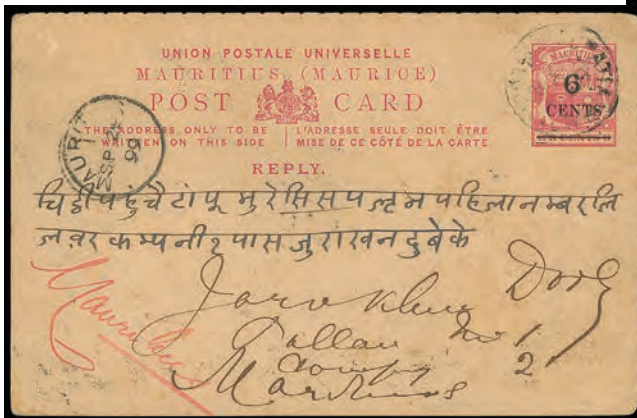 UNION POSTALE UNIVERSELLE
MAURITIUS (MAURICE)
POST CARD
THE ADDRESS ONLY TO BE WRITTEN ON THIS SIDE
L'ADRESSE SEULE DOIT ÊTRE MISE DE CE CÔTÉ DE LA CARTE
REPLY.
MAURITIUS
6
CENTS
MAURI
SP 2
99
चिठ्ठी पहुचै टापू मुरेसिस पल्टन पहिला नम्बर
कम्पनी २ पास जुराखन दुबेके
No 1
2
Mauritius